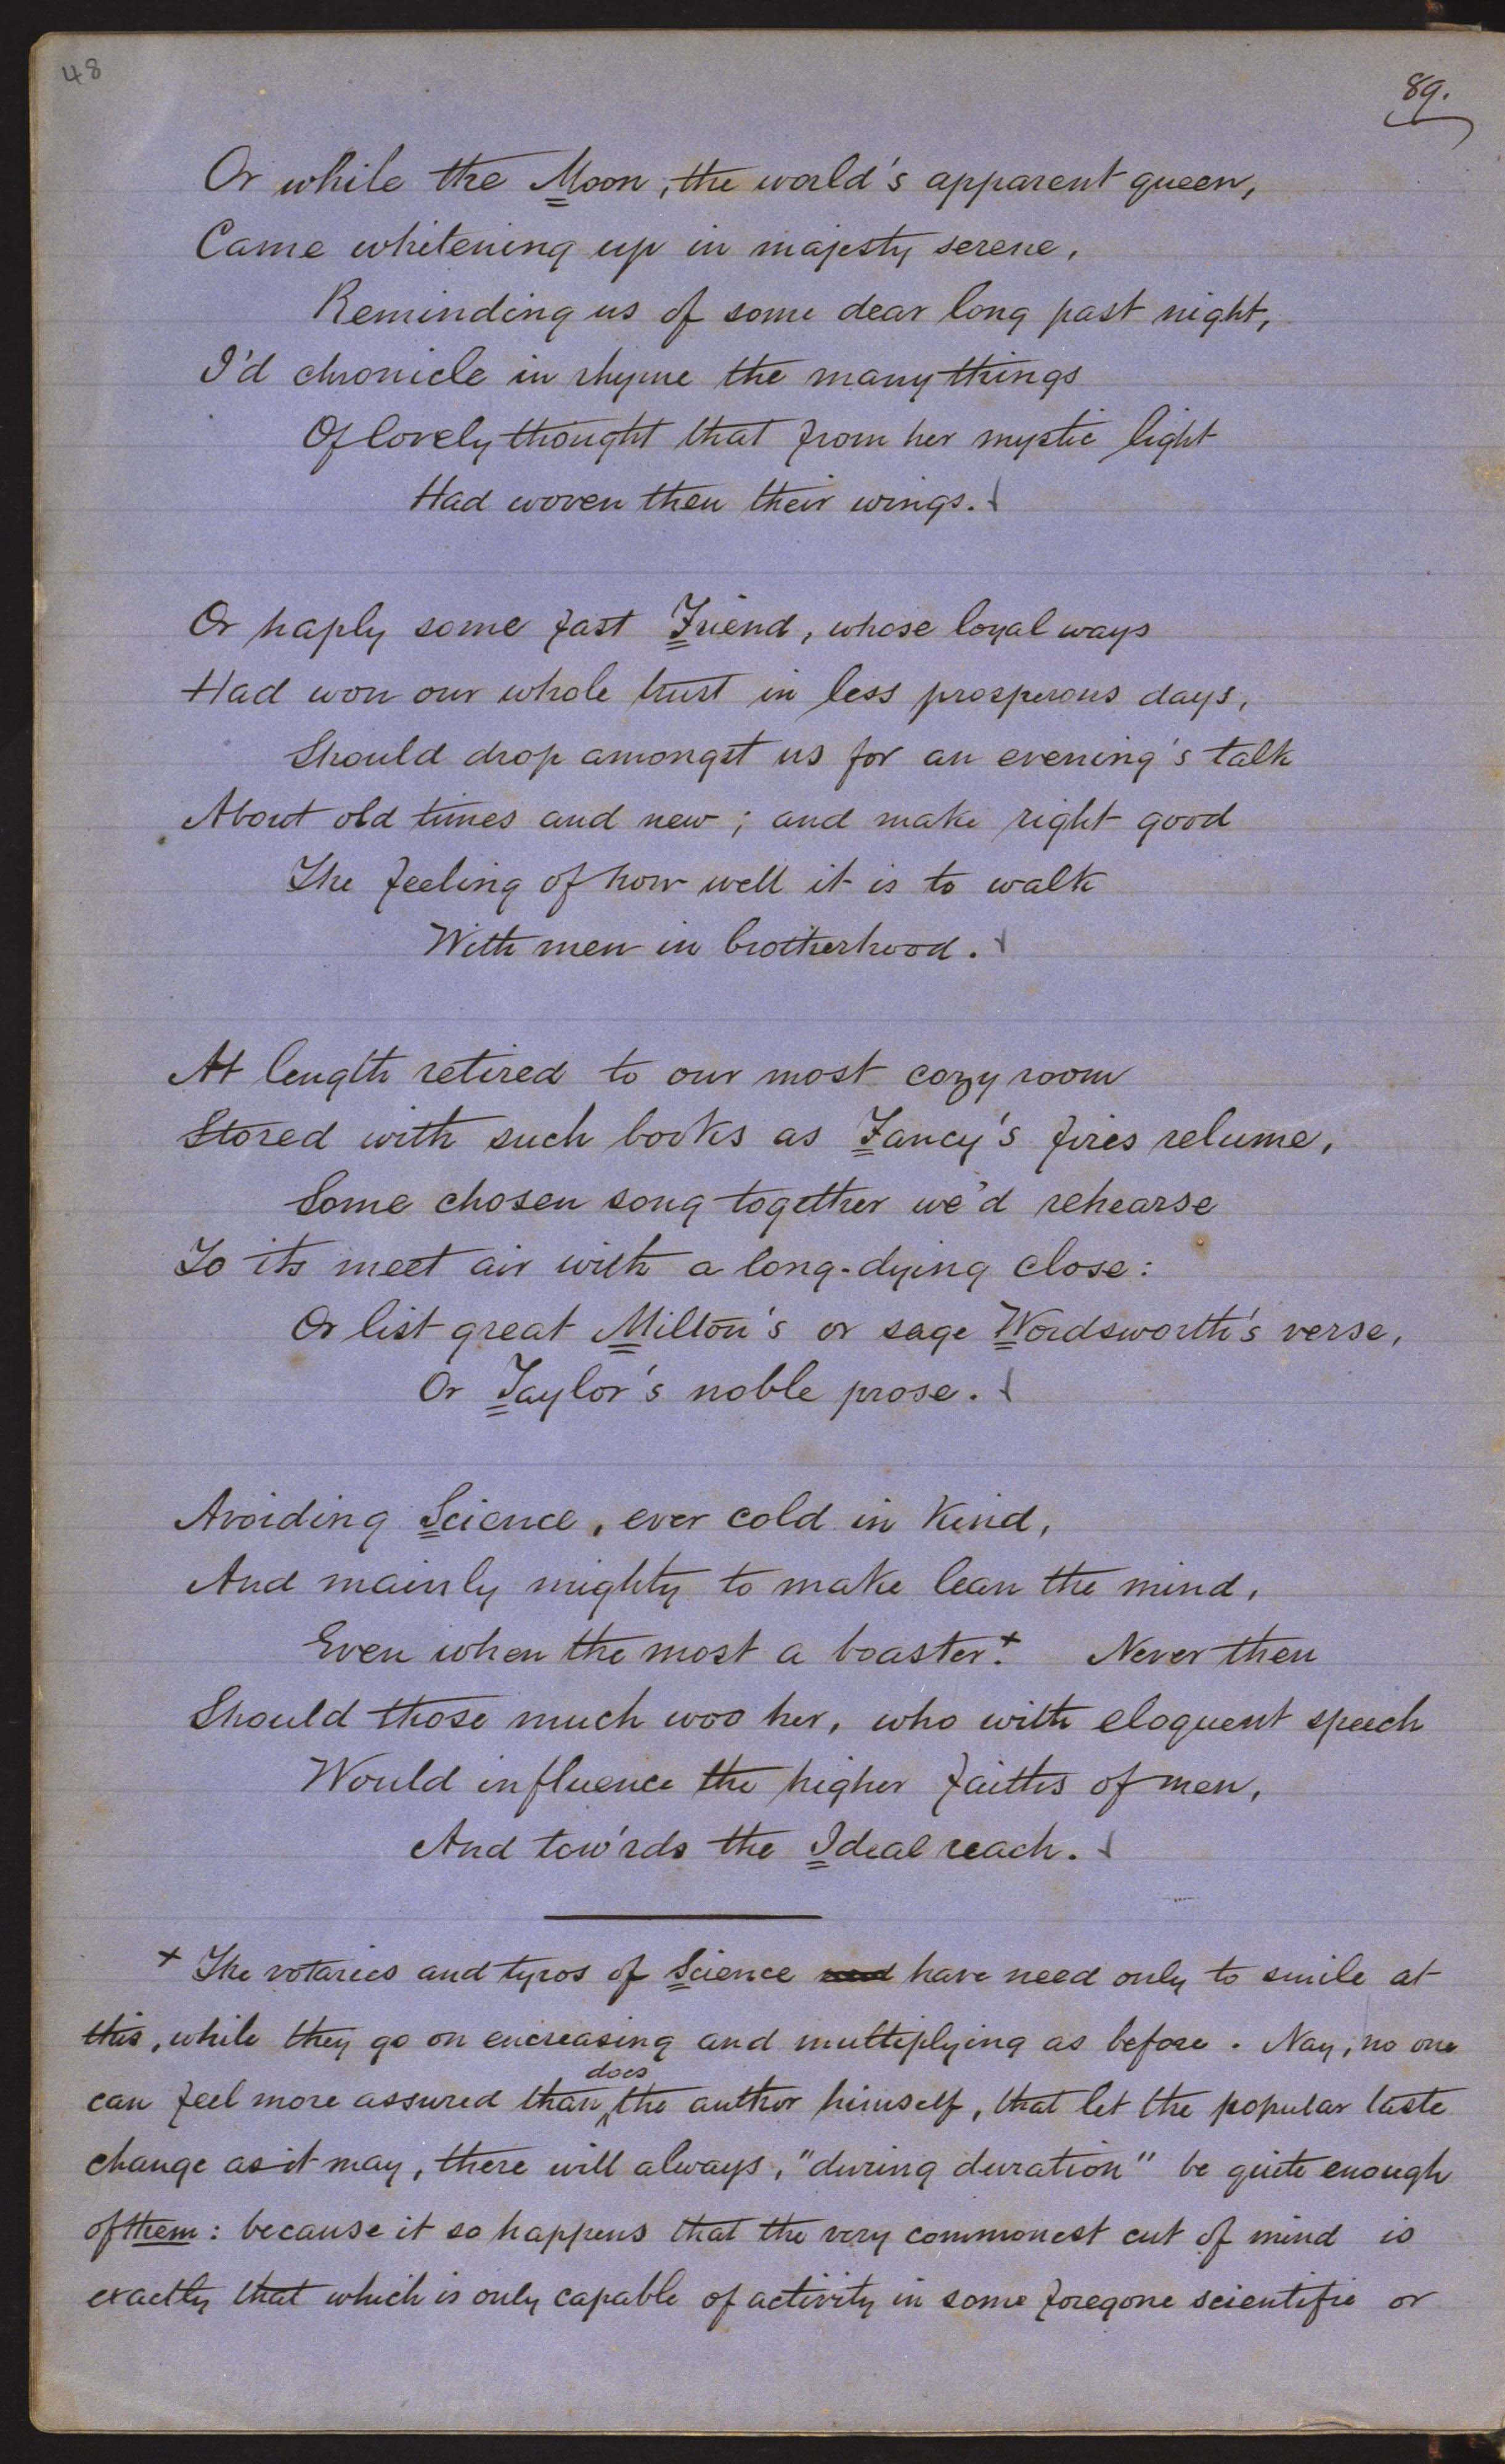 48
89.
Or while the Moon, the world's apparent queen,
Came whitening up in majesty serene,
Reminding us of some dear long past night,
I'd chronicle in rhyme the many things
Of lovely thought that from her mystic light
Had woven then their wings.
Or haply some fast Friend, whose loyal ways
Had won our whole trust in less prosperous days,
Should drop amongst us for an evening's talk
About old times and new; and make right good
The feeling of how well it is to walk
With men in brotherhood.
At length retired to our most cozy room
Stored with such books as Fancy's fires relume,
Some chosen song together we'd rehearse
To its meet air with a long-dying close:
Or list great Milton's or sage Wordsworth's verse,
Or Taylor's noble prose.
Avoiding Science, ever cold in kind,
And mainly mighty to make lean the mind,
Even when the most a boaster.+ Never then
Should those much woo her, who with eloquent speech
Would influence the higher faiths of men,
And tow'rds the Ideal reach.
+ The votaries and tyros of Science need have need only to smile at
this, while they go on encreasing and multiplying as before. Nay, no one
does
can feel more assured than the author himself, that let the popular taste
change as it may, there will always, "during duration" be quite enough
of them: because it so happens that the very commonest cut of mind is
exactly that which is only capable of activity in some foregone scientific or